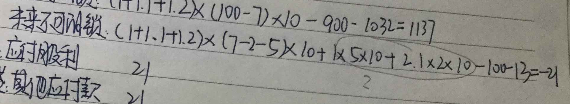 (1+1.1+1.2)×(100-7)×10-900-1032=1137
未来不可撤销: (1+1.1+1.2)×(7-2-5)×10+1×5×10+2.1×2×10-100-13=-21
应付股利 21
其他应付款 21
2